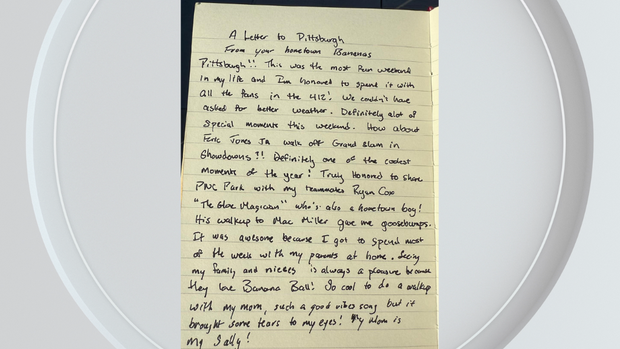 A Letter to Pittsburgh
From your hometown Bananas
Pittsburgh!! This was the most fun weekend
in my life and I'm honored to spend it with
all the fans in the 412! We couldn't have
asked for better weather. Definitely alot of
special moments this weekend. How about
Eric Jones Jr walk off Grand Slam in
Showdowns!! Definitely one of the coolest
moments of the year! Truly Honored to share
PNC Park with my teammates Ryan Cox
"The Glove Magician" who's also a hometown boy!
His walkup to Mac Miller gave me goosebumps.
It was awesome because I got to spend most
of the week with my parents at home. Seeing
my family and nieces is always a pleasure because
they love Banana Ball! So cool to do a walkup
with my mom, such a good vibes song but it
brought some tears to my eyes! My mom is
my Sally!